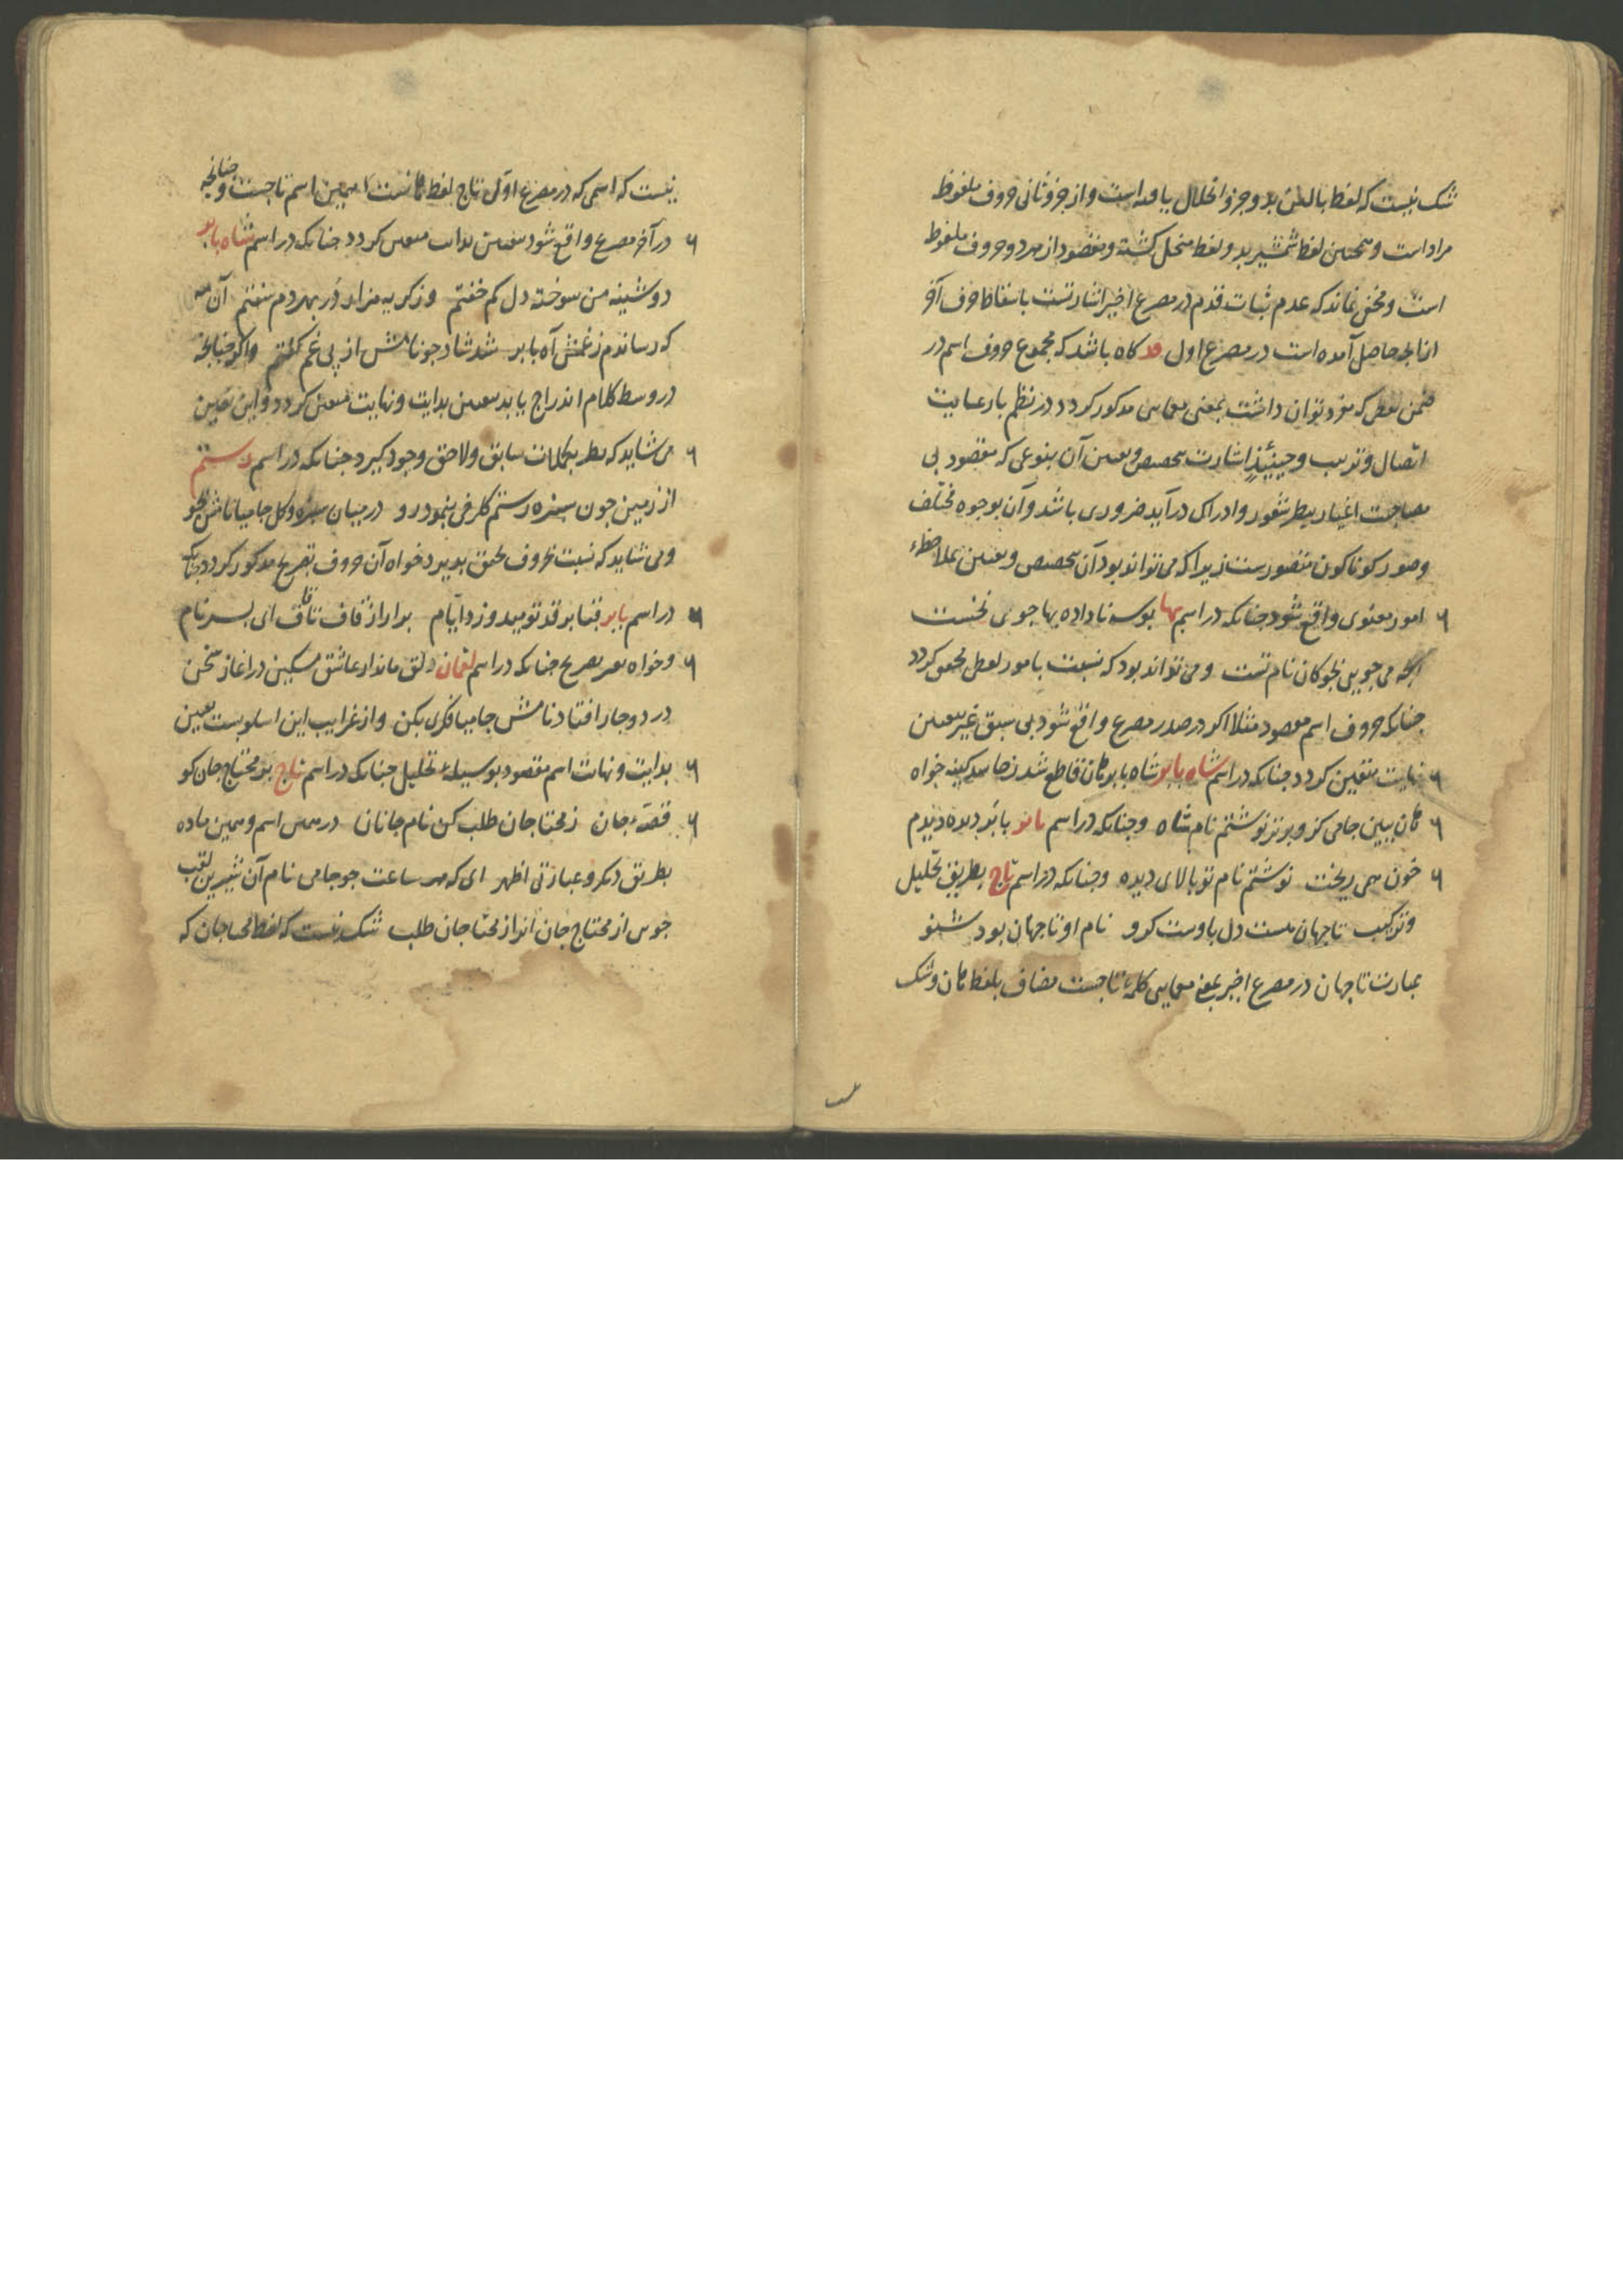 شک نیست که لفظ بالین بدو جزو انحلال یافته است و از جزو ثانی حروف ملفوظ
مراد است و همچنین لفظ شمشیر بدو لفظ منحل کشته و مقصود از هر دو حروف ملفوظ
است و مخفی نماند که عدم ثبات قدم در مصرع اخیر اشارتست باسقاط حرف آخر
ازانچه حاصل آمده است در مصرع اول کاه باشد که مجموع حروف اسم در
ضمن لفظی که مفرد توان داشت بمعنی معمایی مذکور کردد در نظم با رعایت
اتصال و ترتیب و حینئذٍ اشارت بتخصیص و تعیین آن بنوعی که مقصود بی
مصاحبت اغیار بنظر شعور و ادراک درآید ضروری باشد و آن بوجوه مختلف
و صور کوناکون متصورست زیرا که می تواند بود آن تخصیص و تعیین بملاحظهٔ
امور معنوی واقع شود چنانکه در اسم بها بوسه ناداده بها جوی نخست
آنچه می جویی نجوکان نام تست و می تواند بود که نسبت بامور لفظی محقق کردد
چنانکه حروف اسم مقصود مثلا اکر در صدر مصرع واقع شود بی سبق غیر تعیین
نهایت متعین کردد چنانکه در اسم شاه بابر شاه بابر کان قاطع شد کینه خواه
کان ببین جامی کزو برتر نوشتم نام شاه و چنانکه در اسم بابر بابر دیده دیدم
خون همی ریخت نوشتم نام تو بالای دیده و چنانکه در اسم تاج بطریق تحلیل
و ترکیب تا جهان هست دل باوست کرو نام او تا جهان بود شنو
عبارت تا جهان در مصرع اخیر بمعنی معمایی کلمهٔ تاجست مضاف بلفظ کان و شک
نیست که اسمی که در مصرع اول تاج لفظ کانست همین اسم تاجست و چنانچه
در آخر مصرع واقع شود تعیین بدایت متعین کردد چنانکه در اسم شاه بابر
دوشینه من سوخته دل کم خفتم وز کریه هزار در بهر دم سفتم آن
که رساندم ز غمش آه بابر شد شاد چو نامش از پی غم کفتم و اکر چنانچه
در وسط کلام اندراج یابد تعیین بدایت و نهایت متعین کردد و این تعیین
می شاید که نظر بکلمات سابق و لاحق وجود کیرد چنانکه در اسم رستم
از زمین چون سبزه رستم کلرخی بنمود رو در میان سبزه و کل جامیا نامش بجو
و می شاید که نسبت بحروف تحقق پذیرد خواه آن حروف بتصریح مذکور کردد چنانکه
در اسم بابر قبا بر قد تو میدوزد ایام برار از قاف تا قاف ای پسر نام
و خواه غیر تصریح چنانکه در اسم لقمان دلق ماند از عاشق مسکین در آغاز سخن
در دو جا افتاد نامش جامیا فکری بکن و از غرایب این اسلوبست تعیین
بدایت و نهایت اسم مقصود بوسیلهٔ تحلیل چنانکه در اسم تاج بر محتاج جان کو
قصهٔ جان ز محتاجان طلب کن نام جانان در همین اسم و همین ماده
بطریق دیکر و عبارتی اظهر ای که هر ساعت جو جامی نام آن شیرین لقب
جویی از محتاج جان آنرا ز محتاجان طلب شک نیست که لفظ محتاجان که